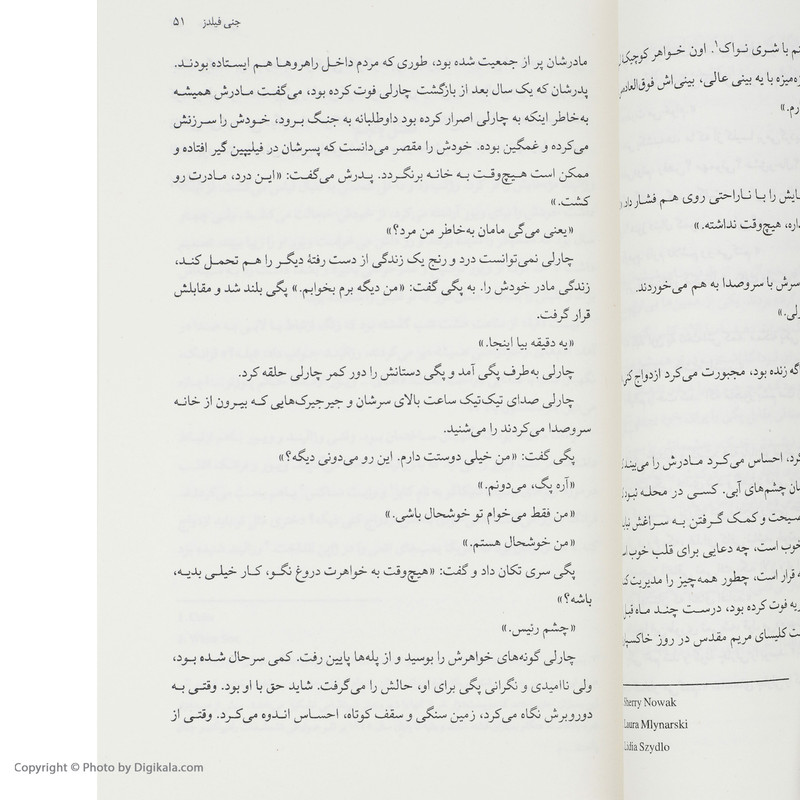 جنی فیلدز ۵۱
مادرشان پر از جمعیت شده بود، طوری که مردم داخل راهروها هم ایستاده بودند.
پدرشان که یک سال بعد از بازگشت چارلی فوت کرده بود، می‌گفت مادرش همیشه
به‌خاطر اینکه به چارلی اصرار کرده بود داوطلبانه به جنگ برود، خودش را سرزنش
می‌کرده و غمگین بوده. خودش را مقصر می‌دانست که پسرشان در فیلیپین گیر افتاده و
ممکن است هیچ‌وقت به خانه برنگردد. پدرش می‌گفت: «این درد، مادرت رو
کشت.»
«یعنی می‌گی مامان به‌خاطر من مرد؟»
چارلی نمی‌توانست درد و رنج یک زندگی از دست رفتهٔ دیگر را هم تحمل کند،
زندگی مادر خودش را. به پگی گفت: «من دیگه برم بخوابم.» پگی بلند شد و مقابلش
قرار گرفت.
«یه دقیقه بیا اینجا.»
چارلی به‌طرف پگی آمد و پگی دستانش را دور کمر چارلی حلقه کرد.
چارلی صدای تیک‌تیک ساعت بالای سرشان و جیرجیرک‌هایی که بیرون از خانه
سروصدا می‌کردند را می‌شنید.
پگی گفت: «من خیلی دوستت دارم. این رو می‌دونی دیگه؟»
«آره پگ، می‌دونم.»
«من فقط می‌خوام تو خوشحال باشی.»
«من خوشحال هستم.»
پگی سری تکان داد و گفت: «هیچ‌وقت به خواهرت دروغ نگو، کار خیلی بدیه،
باشه؟»
«چشم رئیس.»
چارلی گونه‌های خواهرش را بوسید و از پله‌ها پایین رفت. کمی سرحال شده بود،
ولی ناامیدی و نگرانی پگی برای او، حالش را می‌گرفت. شاید حق با او بود. وقتی به
دوروبرش نگاه می‌کرد، زمین سنگی و سقف کوتاه، احساس اندوه می‌کرد. وقتی از
با شری نواک۱. اون خواهر کوچیک
با یه بینی عالی، بینی‌اش
را با ناراحتی روی هم فشار داد
هیچ‌وقت نداشته.»
با سروصدا به هم می‌خوردند.
زنده بود، مجبورت می‌کرد ازدواج
احساس می‌کرد مادرش را
چشم‌های آبی. کسی در محله
و کمک گرفتن به سراغش
خوب است، چه دعایی برای قلب
قرار است، چطور همه‌چیز را مدیریت
فوت کرده بود، درست چند ماه
کلیسای مریم مقدس در روز
Sherry Nowak
Laura Mlynarski
Lidia Szydlo
Copyright © Photo by Digikala.com